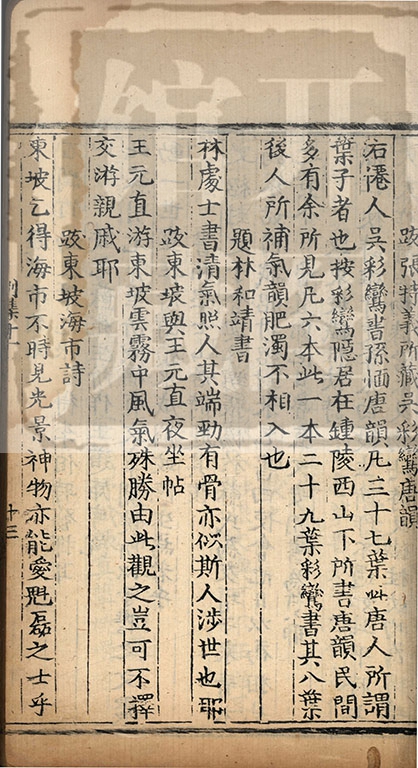 跋張持義所藏吳彩鸞唐韻
右僊人吳彩鸞書孫愐唐韻凡三十七葉此唐人所謂
葉子者也按彩鸞隱居在鍾陵西山下所書唐韻民間
多有余所見凡六本此一本二十九葉彩鸞書其八葉
後人所補氣韻肥濁不相入也
題林和靖書
林處士書清氣照人其端勁有骨亦似斯人涉世也耶
跋東坡與王元直夜坐帖
王元直游東坡雲霧中風氣殊勝由此觀之豈可不擇
交游親戚耶
跋東坡海市詩
東坡乞得海市不時見光景神物亦能愛魁磊之士乎
別集十一
十三